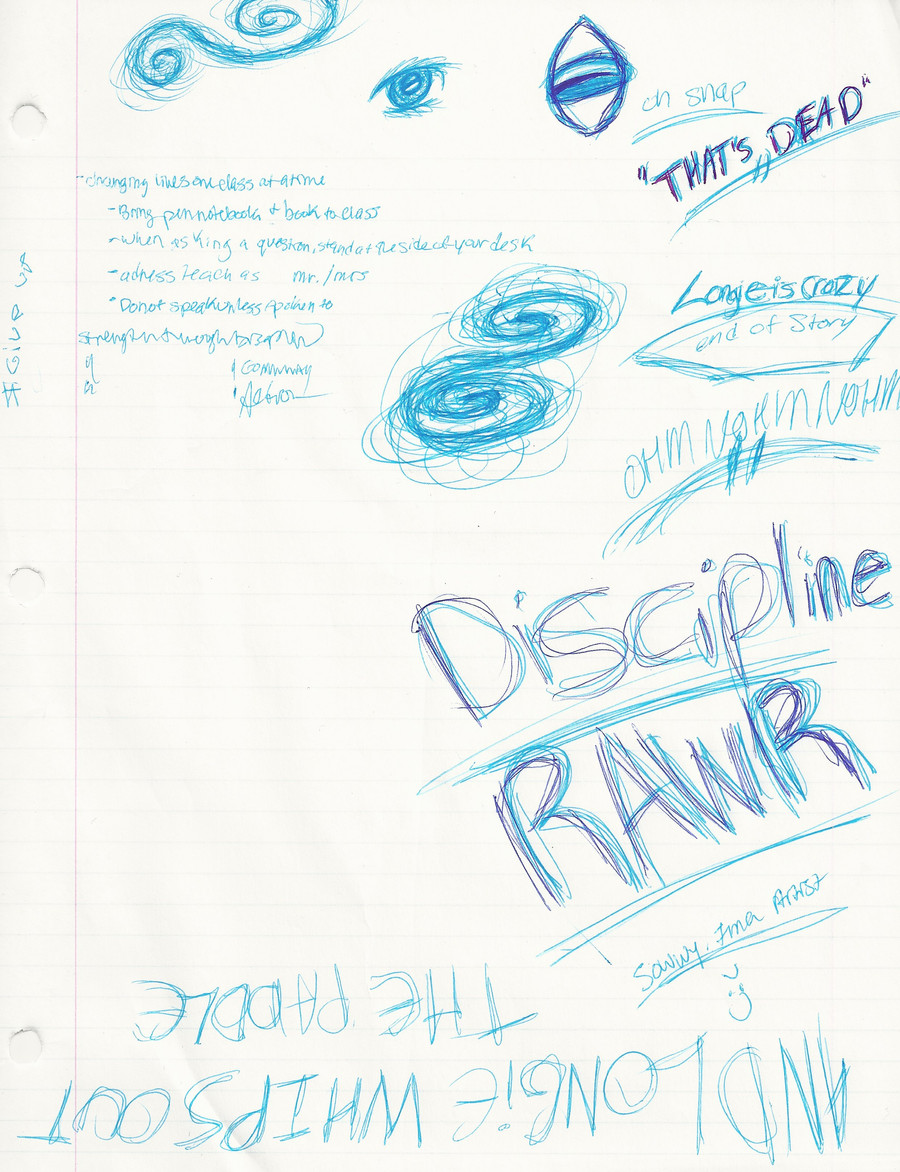 oh snap
"THAT'S DEAD"
- changing lives one class at a time
- Bring pen notebook + book to class
- when asking a question, stand at the side of your desk
- adress teach as mr./mrs
" Do not speak unless spoken to
strength through Discipline
" Community
" Action
#Give up
Longie is crazy
end of Story
OHMNOHMNOHM
Discipline
RAWR
Savvy. Ima Artist
:)
AND LONGIE WHIPS OUT
THE PADDLE